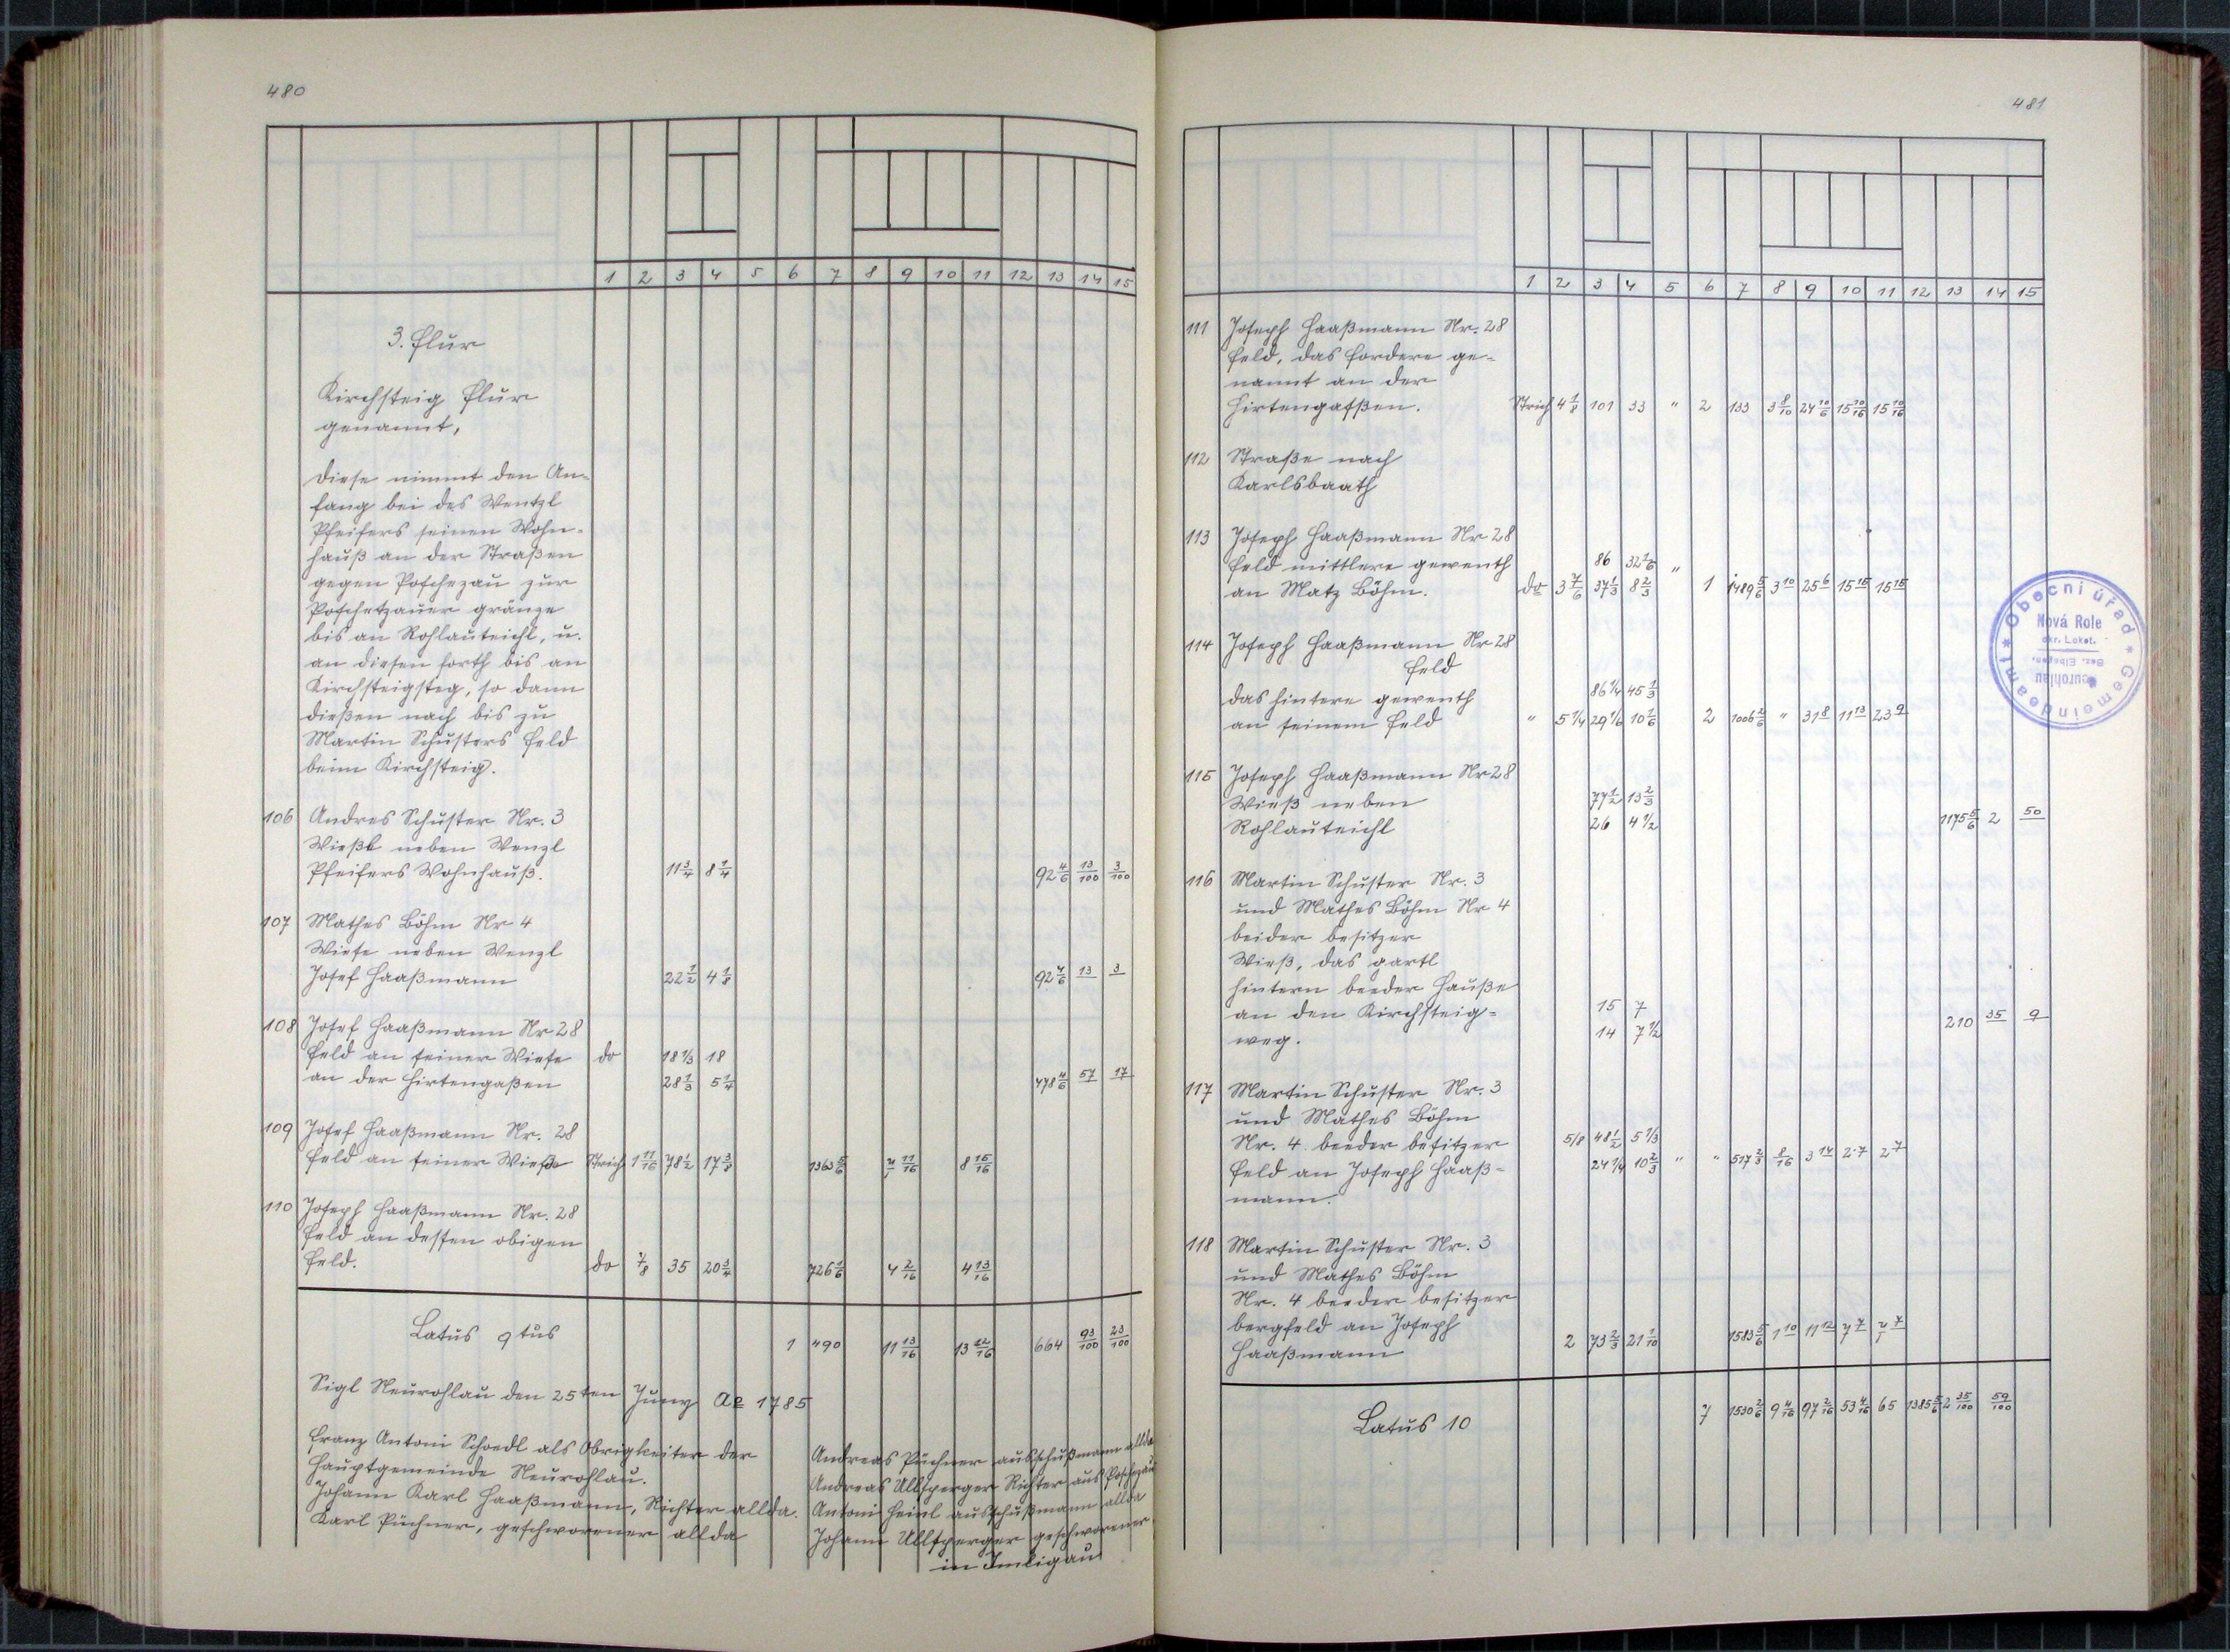 480
1 2 3 4 5 6 7 8 9 10 11 12 13 14 15
3. Flur
Kirchsteig Flur
genannt,
diese nimmt den An-
fang bei des Wentzl
Pfeifers seinen Wohn-
hauß an der Straßen
gegen Poschezau zur
Poschetzauer gränze
bis an Rohlauteichl, u.
an diesen forth bis an
Kirchsteigsteg, so dann
dießen nach bis zu
Martin Schusters Feld
beim Kirchsteig.
106 Andres Schuster Nr. 3
Wießk neben Wenzl
Pfeifers Wohnhauß. 11 3/4 8 1/4 92 4/6 13/100 3/100
107 Mathes Böhm Nr 4
Wiese neben Wenzl
Josef Haaßmann 22 1/2 4 1/8 92 4/6 13 3
108 Josef Haaßmann Nr 28
Feld an seiner Wiese do 18 1/3 18
an der Hirtengaßen 28 1/3 5 1/4 478 4/6 57 17
109 Josef Haaßmann Nr. 28
Feld an seiner Wieße Strich 1 11/16 78 1/2 17 3/8 1363 5/6 11/16 8 15/16
110 Joseph Haaßmann Nr. 28
Feld an dessen obigen
Feld. do 7/8 35 20 3/4 726 1/6 4 2/16 4 13/16
Latus 9tus 1 490 11 13/16 13 12/16 664 93/100 23/100
Sigl Neurohlau den 25ten Juny Ao 1785
Franz Antoni Schedl als Obrigkeiter der
Hauptgemeinde Neurohlau.
Johann Karl Haaßmann, Richter allda.
Karl Püchner, geschworener allda
Andreas Püchner ausschußmann allda
Andreas Ullsperger Richter aus Poschezau
Antoni Heinl ausschußmann allda
Johann Ullsperger geschworener
in Imligau
481
1 2 3 4 5 6 7 8 9 10 11 12 13 14 15
111 Joseph Haaßmann Nr. 28
Feld, das fordere ge-
nannt an der
Hirtengassen. Strich 4 1/8 101 33 " 2 133 3 8/10 24 10/6 15 10/16 15 10/16
112 Straße nach
Karlsbaath
113 Joseph Haaßmann Nr 28
Feld mittlere gewenth 86 32 1/6 "
an Matz Böhm. do 3 7/6 37 1/3 8 2/3 1 1489 5/6 3 10 25 6 15 15 15 15
114 Joseph Haaßmann Nr 28
Feld
das hintere gewenth 86 1/4 45 1/3
an seinem Feld " 5 1/4 29 1/6 10 1/6 2 1006 2/6 " 31 8 11 13 23 9
115 Joseph Haaßmann Nr 28
Wieß neben 77 1/2 13 2/3
Rohlauteichl 26 4 1/2 1175 5/6 2 50
116 Martin Schuster Nr. 3
und Mathes Böhm Nr 4
beider besitzer
Wieß, das gartl
hintern beeder Hauße
an den Kirchsteig- 15 7 210 35 9
weg. 14 7 1/2
117 Martin Schuster Nr. 3
und Mathes Böhm
Nr. 4 beeder besitzer 5/8 48 1/2 5 1/3
Feld an Joseph Haaß- 24 1/4 10 2/3 " " 517 2/3 8/16 3 14 2 7 2 7
mann.
118 Martin Schuster Nr. 3
und Mathes Böhm
Nr. 4 beeder besitzer
bergfeld an Joseph
Haaßmann 2 73 2/3 21 1/10 1583 5/6 1 10 11 12
Latus 10 7 1530 2/6 9 4/16 97 2/16 53 4/16 65 1385 5/6 2 35/100 59/100
Obecní úřad * Gemeindeamt *
Nová Role
okr. Loket.
Bez. Elbogen.
Neurohlau